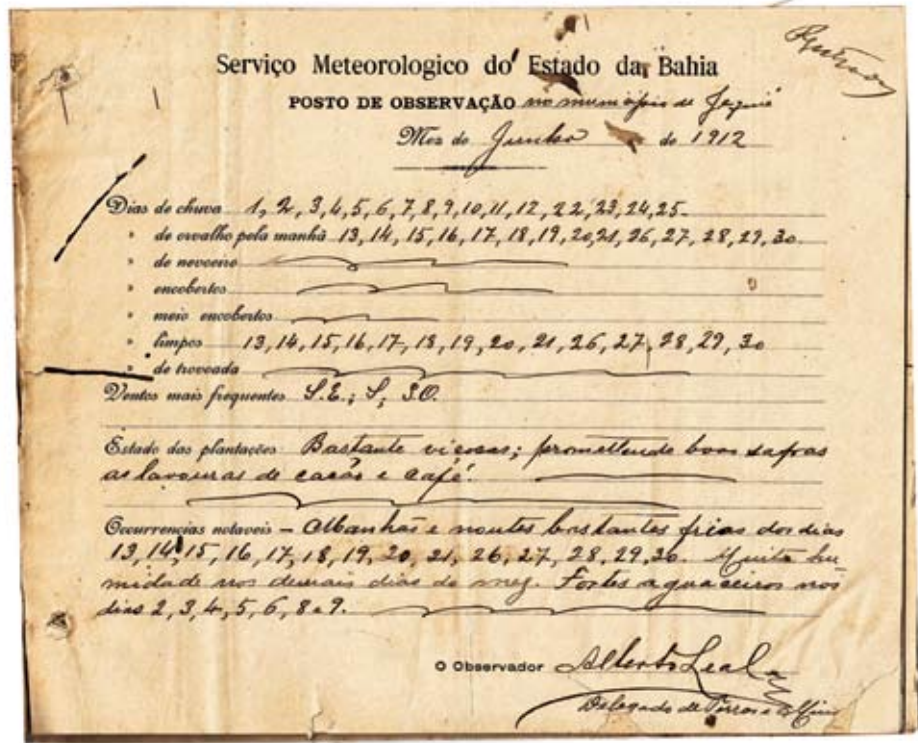 Serviço Meteorologico do Estado da Bahia
POSTO DE OBSERVAÇÃO no municipio de Jequié
Mez de Junho de 1912
Dias de chuva 1, 2, 3, 4, 5, 6, 7, 8, 9, 10, 11, 12, 22, 23, 24, 25.
" de orvalho pela manhã 13, 14, 15, 16, 17, 18, 19, 20, 21, 26, 27, 28, 29, 30.
" de nevoeiro
" encobertos
" meio encobertos
" limpos 13, 14, 15, 16, 17, 18, 19, 20, 21, 26, 27, 28, 29, 30
" de trovoada
Ventos mais frequentes S.E.; S, S.O.
Estado das plantações Bastante viçosas; promettendo boas safras
as lavouras de cacáo e café.
Occurrencias notaveis – Manhãs e noutes bastantes frias dos dias
13, 14, 15, 16, 17, 18, 19, 20, 21, 26, 27, 28, 29, 30. Muita hu
midade nos demais dias do mez. Fortes aguaceiros nos
dias 2, 3, 4, 5, 6, 8 e 9.
O Observador Alberto Leal
Delegado de Terras e Minas